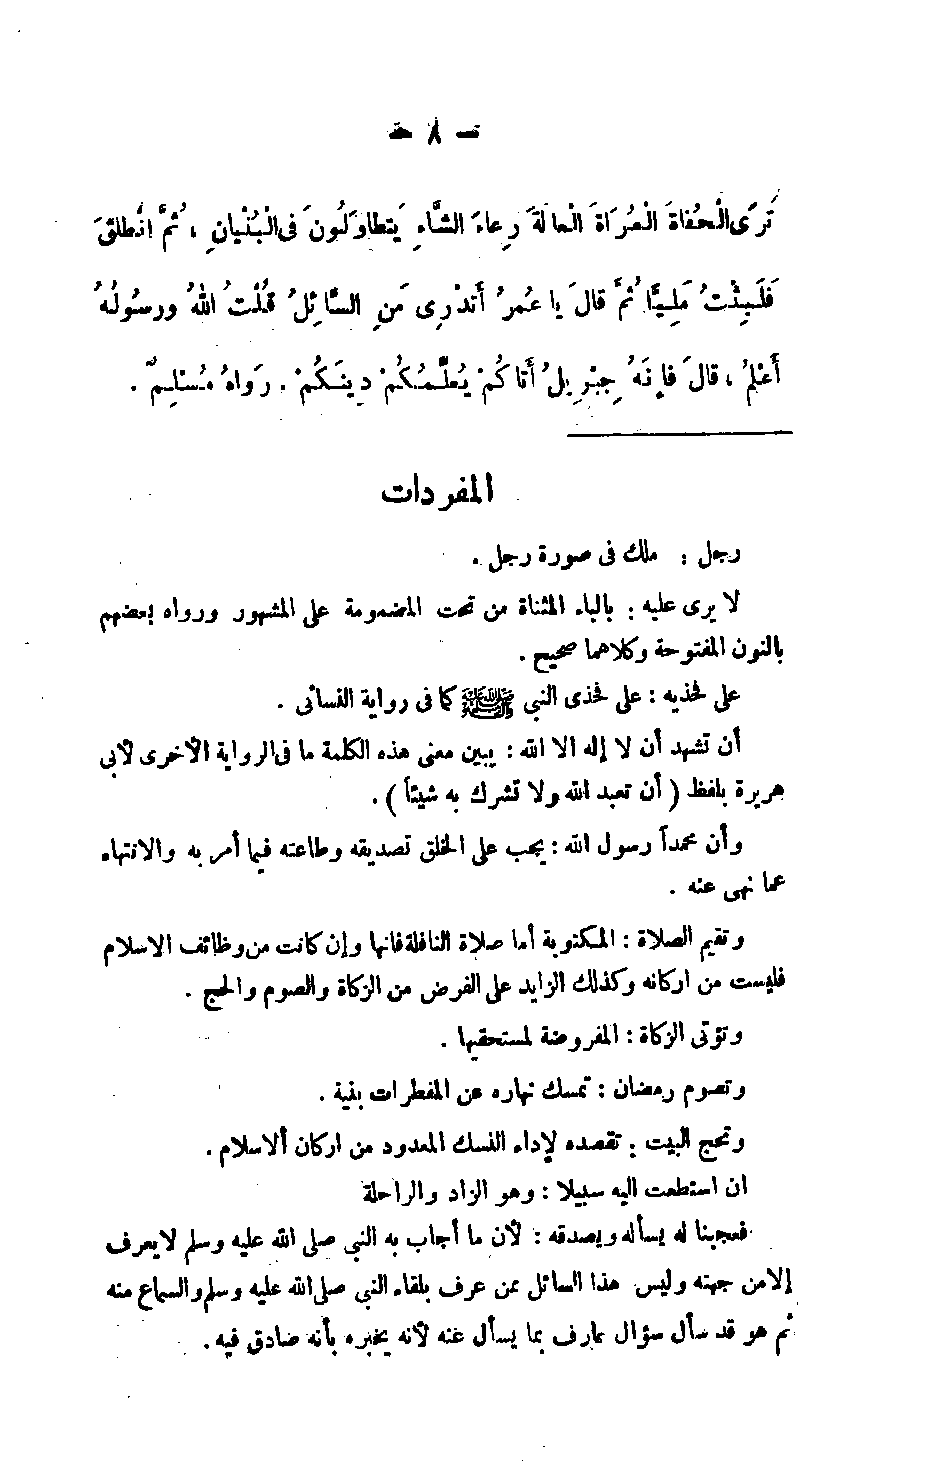 — ٨ —
تَرَى الْحُفاةَ الْعُرَاةَ الْعالَةَ رِعاءَ الشَّاءِ يَتطاوَلُونَ فى الْبُنْيانِ ، ثُمَّ انْطلقَ
فَلَبِثْتُ مَلِيًّا ثُمَّ قالَ يا عُمرُ أَتدْرِى مَنِ السَّائِلُ قُلْتُ اللهُ ورسُولُهُ
أَعْلمُ ، قالَ فإِنَهُ جِبْرِيلُ أَتاكُمْ يُعلِّمُكُمْ دِينَكُمْ . رَواهُ مُسْلِمٌ .
المفردات
رجل : ملك فى صورة رجل .
لا يرى عليه : بالياء المثناة من تحت المضمومة على المشهور ورواه بعضهم
بالنون المفتوحة وكلاهما صحيح .
على فخذيه : على فخذى النبي ﷺ كما فى رواية النسائى .
أن تشهد أن لا إله الا الله : يبين معنى هذه الكلمة ما فى الرواية الأخرى لأبى
هريرة بلفظ ( أن تعبد الله ولا تشرك به شيئاً ) .
وأن محمداً رسول الله : يجب على الخلق تصديقه وطاعته فيما أمر به والانتهاء
عما نهى عنه .
وتقيم الصلاة : المكتوبة أما صلاة النافلة فانها وإن كانت من وظائف الاسلام
فليست من اركانه وكذلك الزايد على الفرض من الزكاة والصوم والحج .
وتؤتى الزكاة : المفروضة لمستحقيها .
وتصوم رمضان : تمسك نهاره عن المفطرات بنية .
وتحج البيت : تقصده لإداء النسك المعدود من اركان ألاسلام .
ان استطعت اليه سبيلا : وهو الزاد والراحلة
فعجبنا له يسأله ويصدقه : لأن ما أجاب به النبي صلى الله عليه وسلم لا يعرف
إلا من جهته وليس هذا السائل ممن عرف بلقاء النبي صلى الله عليه وسلم والسماع منه
ثم هو قد سأل سؤال عارف بما يسأل عنه لأنه يخبره بأنه صادق فيه .